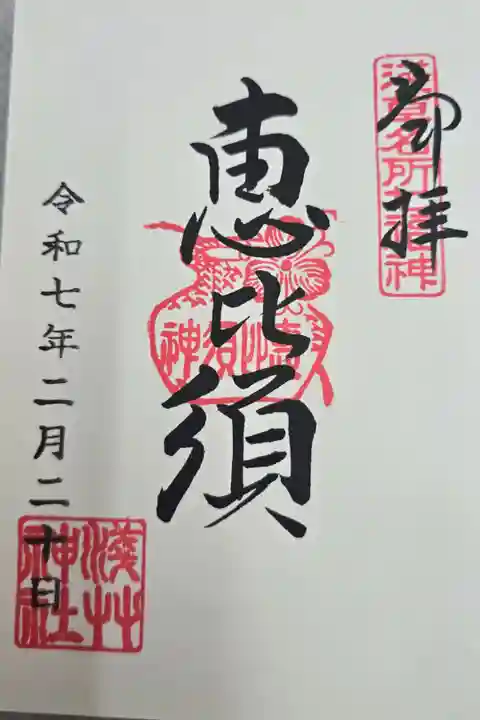 奉拝
浅草名所七福神
恵比須
令和七年二月二十日
浅草神社